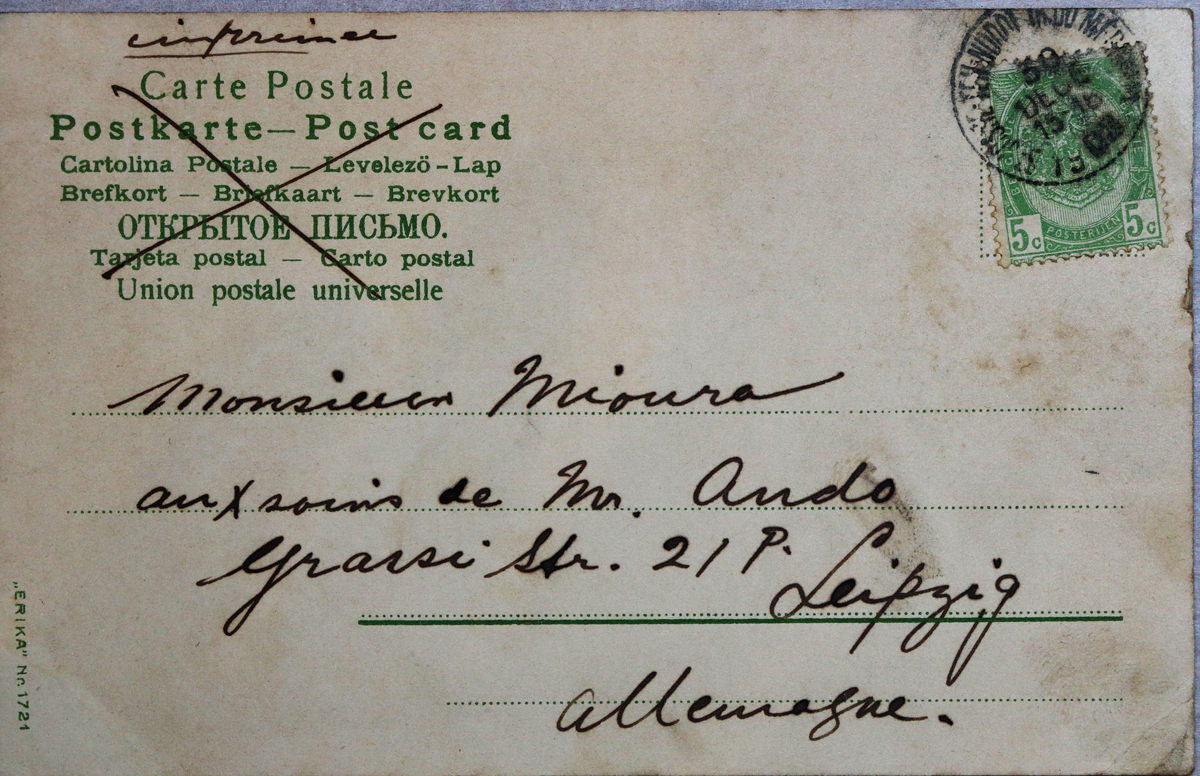 imprimé
Carte Postale
Postkarte — Post card
Cartolina Postale — Levelező-Lap
Brefkort — Briefkaart — Brevkort
ОТКРЫТОЕ ПИСЬМО.
Tarjeta postal — Carto postal
Union postale universelle
DEC
13
5c POSTERIJEN 5c
Monsieur Mioura
aux soins de Mr. Ando
Grassi Str. 21 P.
Leipzig
Allemagne.
„ERIKA" Nr. 1721